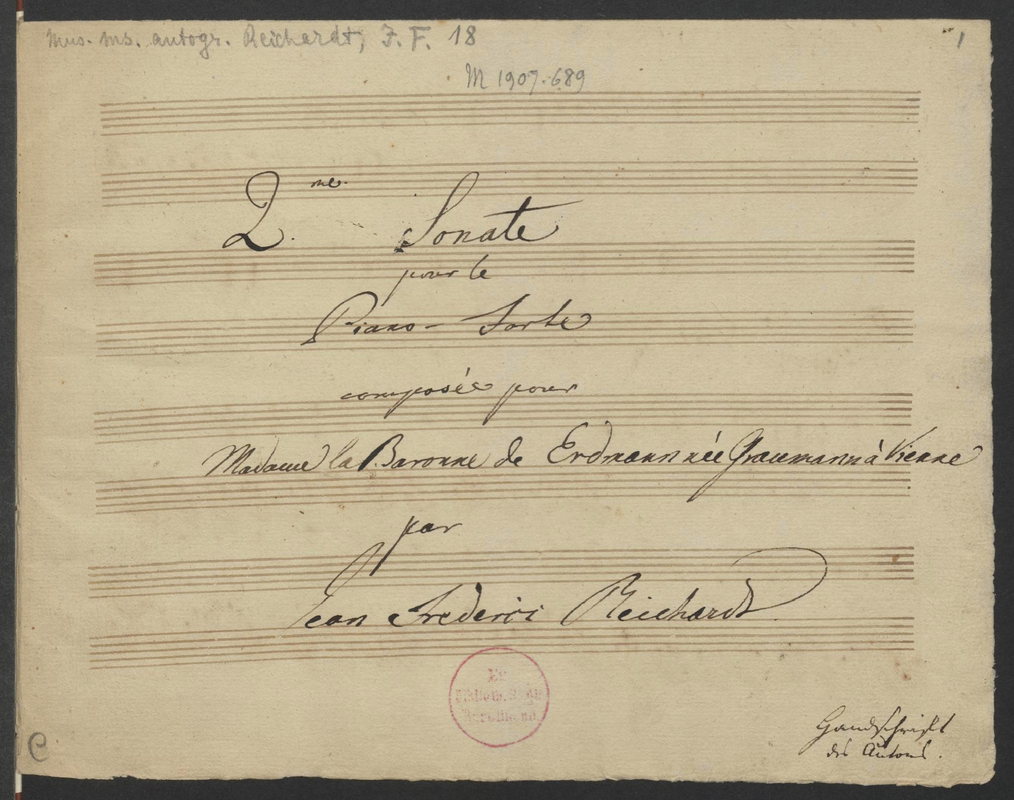 Mus. ms. autogr. Reichardt, J. F. 18
1
M 1907.689
2.me Sonate
pour le
Piano-Forte
composée pour
Madame la Baronne de Erdmann née Graumann à Vienne
par
Jean Frederic Reichardt
Ex
Biblioth. Regia
Berolinens.
Handschrift
des Autors.
C